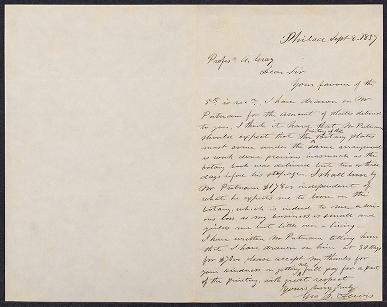 Philada Sept 8, 1857
Profr A. Gray
Dear Sir
Your favour of the
5th is recd. I have drawn on Mr
Putnam for the amount of sheets delivered
to you. I think it hard that Mr Putnam
should expect that the printing of the Botany plates
must come under the same arrangement
as work done previous inasmuch as the
botany work was delivered but two or three
days before his stoppage. I shall lose by
Mr Putnam $178 independent of
what he expects me to lose on the
botany, which is indeed to me a serious
loss as my business is small and
yields me but little over a living.
I have written Mr Putnam telling him
that I have drawn on him at 30 days
for $70 please accept my thanks for
your kindness in getting me full pay for a part
of the printing, with great respect
yours very truly
Geo. D. Lewis